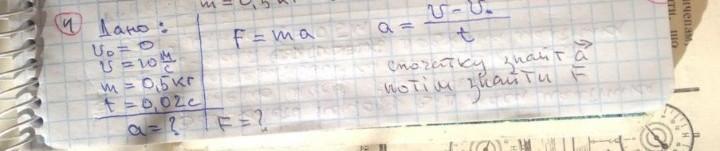 m = 0,5 кг
4 Дано:
υ₀ = 0
υ = 10 м/с
m = 0,5 кг
t = 0,02 с
a = ?
F = ma
F = ?
a = υ - υ₀ / t
спочатку знайт a
потім знайти F